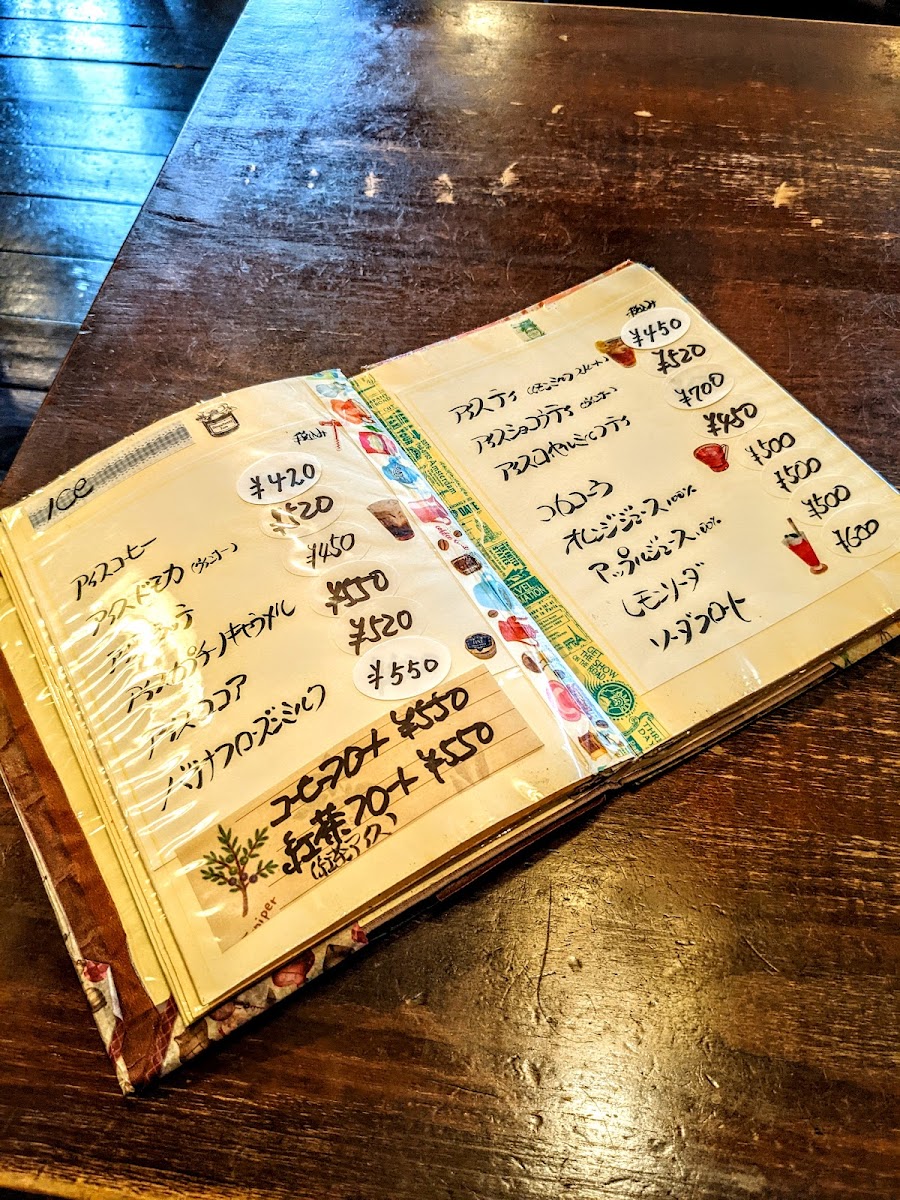 ICE
アイスコーヒー ¥420
アイスドモカ (ヴァンゴー) ¥520
ア テ ¥450
アイスカプチーノキャラメル ¥550
アイスココア ¥520
バナナフローズンミルク ¥550
コーヒーフロート ¥550
紅茶フロート ¥550
(紅茶アイス)
niper
アイスティ ¥450
アイスショコラティ (ヴァンゴー) ¥520
アイスロイヤルミルクティ ¥700
コカコーラ ¥450
オレンジジュース 100% ¥500
アップルジュース 100% ¥500
レモンソーダ ¥500
ソーダフロート ¥600